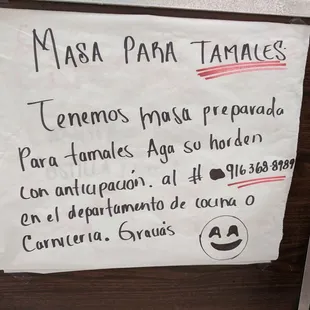 MASA PARA TAMALES.
Tenemos masa preparada
Para tamales Aga su horden
con anticipación. al # 916 368-8989
en el departamento de cocina o
Carniceria. Gracias